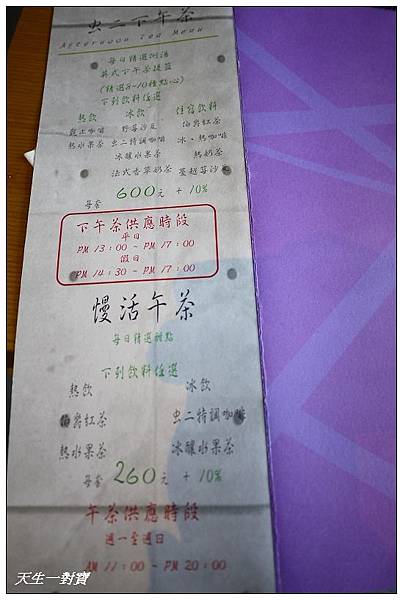 虫二下午茶
Afternoon Tea Menu
每日精選例湯
英式下午茶提籃
(精選8~10種點心)
下列飲料任選
熱飲 冰飲 住宿飲料
莊上咖啡 野莓沙瓦 伯爵紅茶
熱水果茶 虫二特調咖啡 冰、熱咖啡
冰釀水果茶 熱奶茶
法式香草奶茶 蔓越莓沙瓦
每套 600元 + 10%
下午茶供應時段
平日
PM 13：00 ~ PM 17：00
假日
PM 14：30 ~ PM 17：00
慢活午茶
每日精選甜點
下列飲料任選
熱飲 冰飲
伯爵紅茶 虫二特調咖啡
熱水果茶 冰釀水果茶
每套 260元 + 10%
午茶供應時段
週一至週日
AM 11：00 ~ PM 20：00
天生一對寶